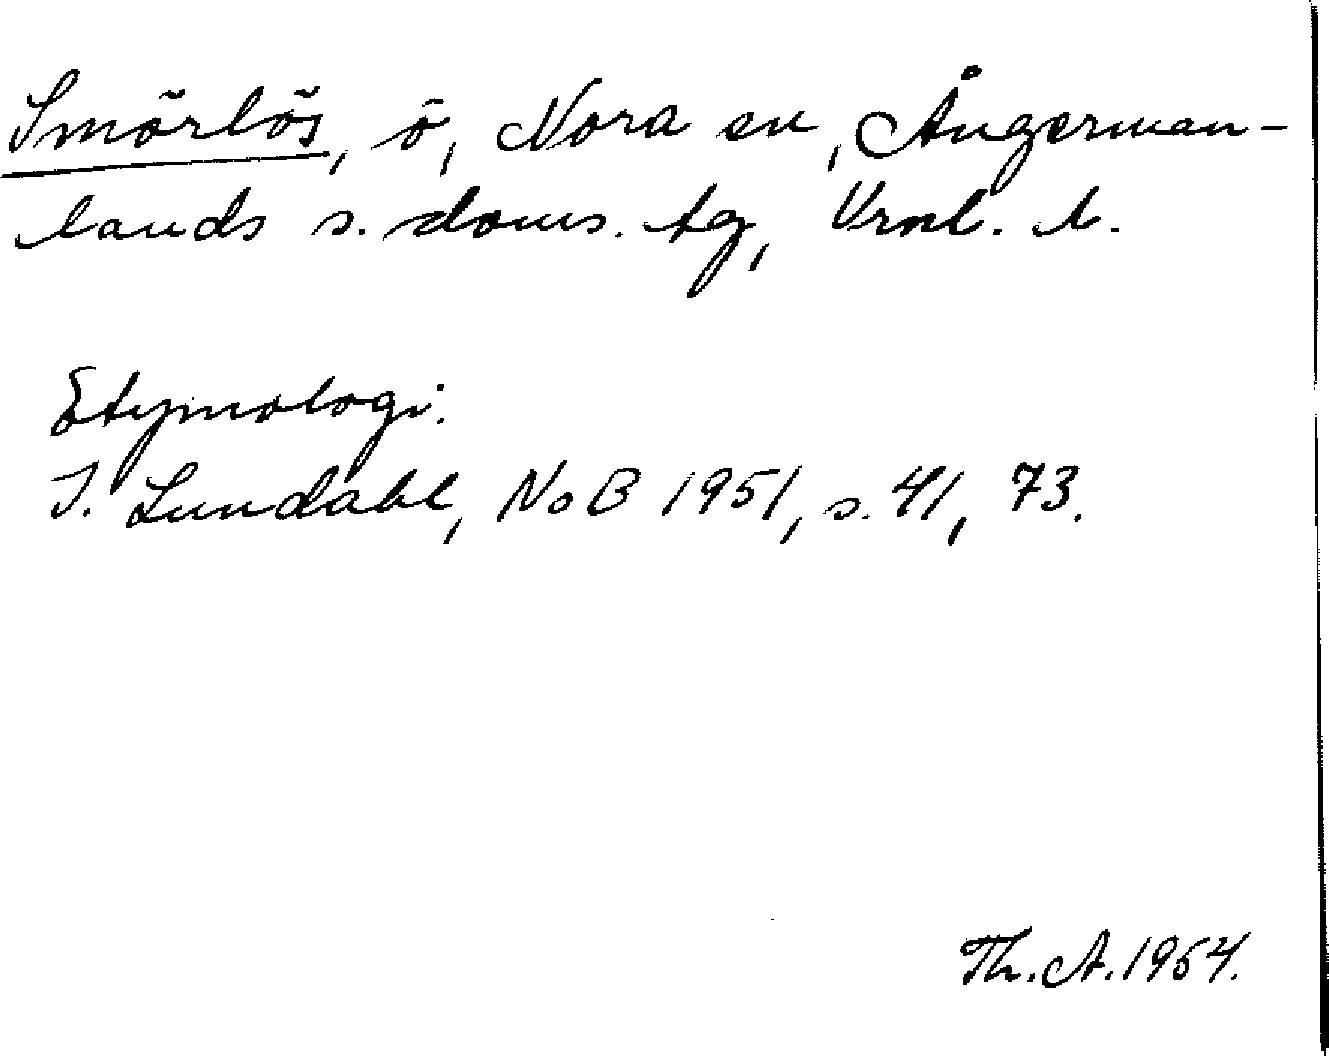 Smörlös, ö, Nora sn, Ångerman-
lands s. doms. tg, Vrnl. l.
Etymologi.
I. Lundahl, NoB 1951, s. 41, 73.
Th. A. 1954.